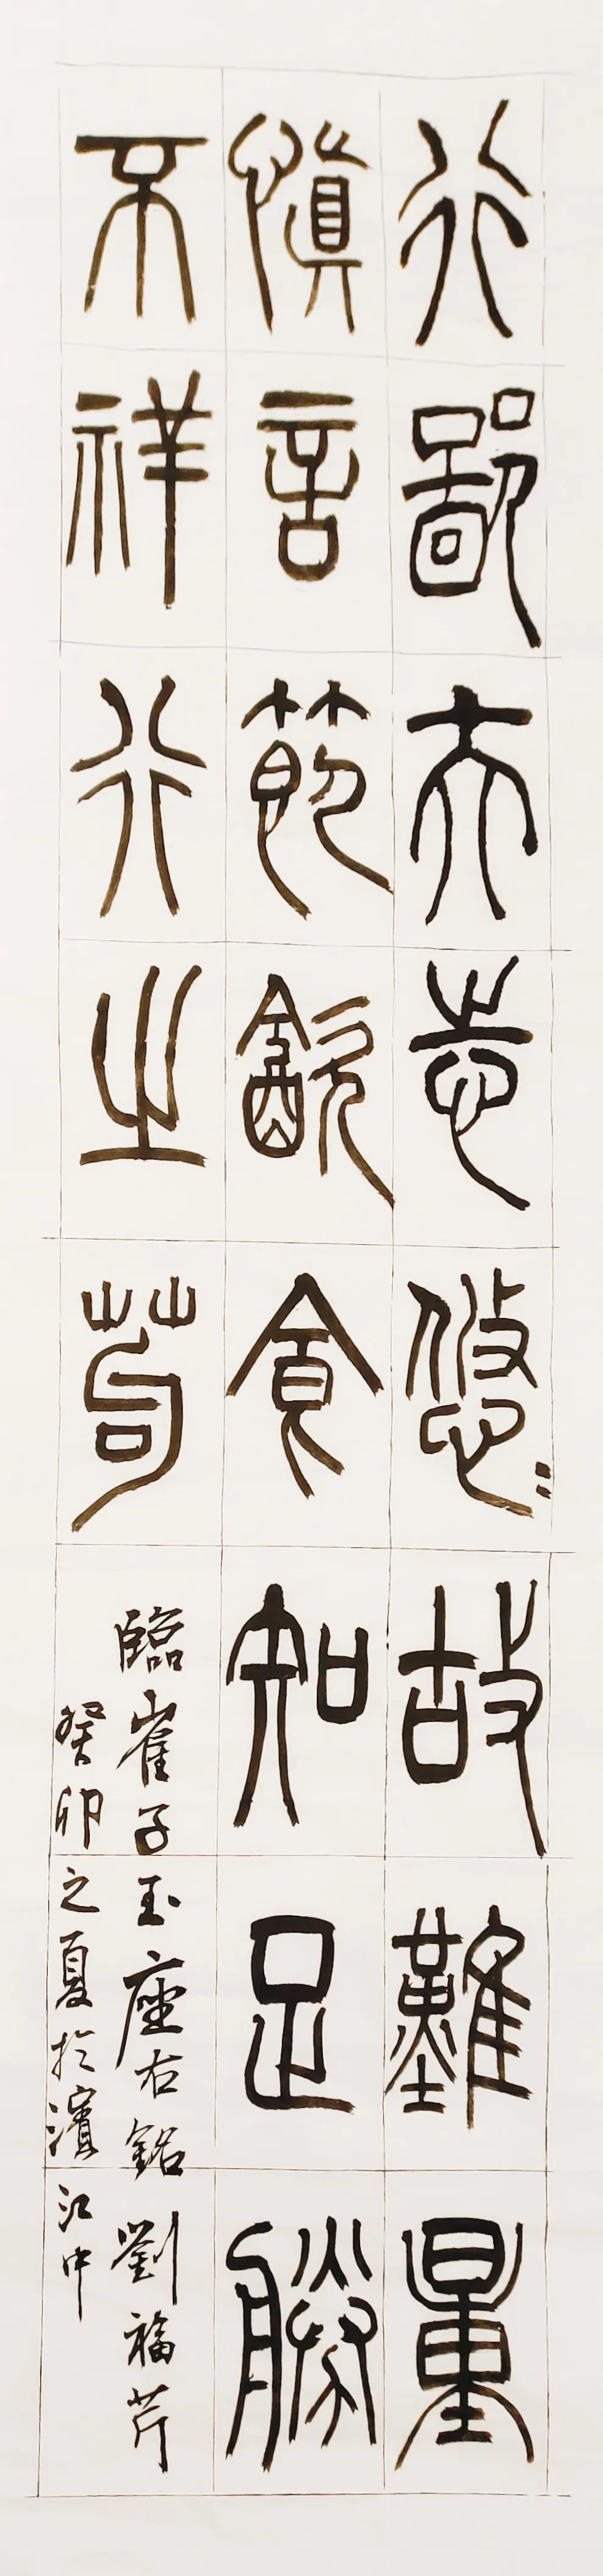 行鄙夫志悠〻故難量
慎言節飲食知足勝
不祥行之苟
臨崔子玉座右銘 劉福芹
癸卯之夏於濱江中